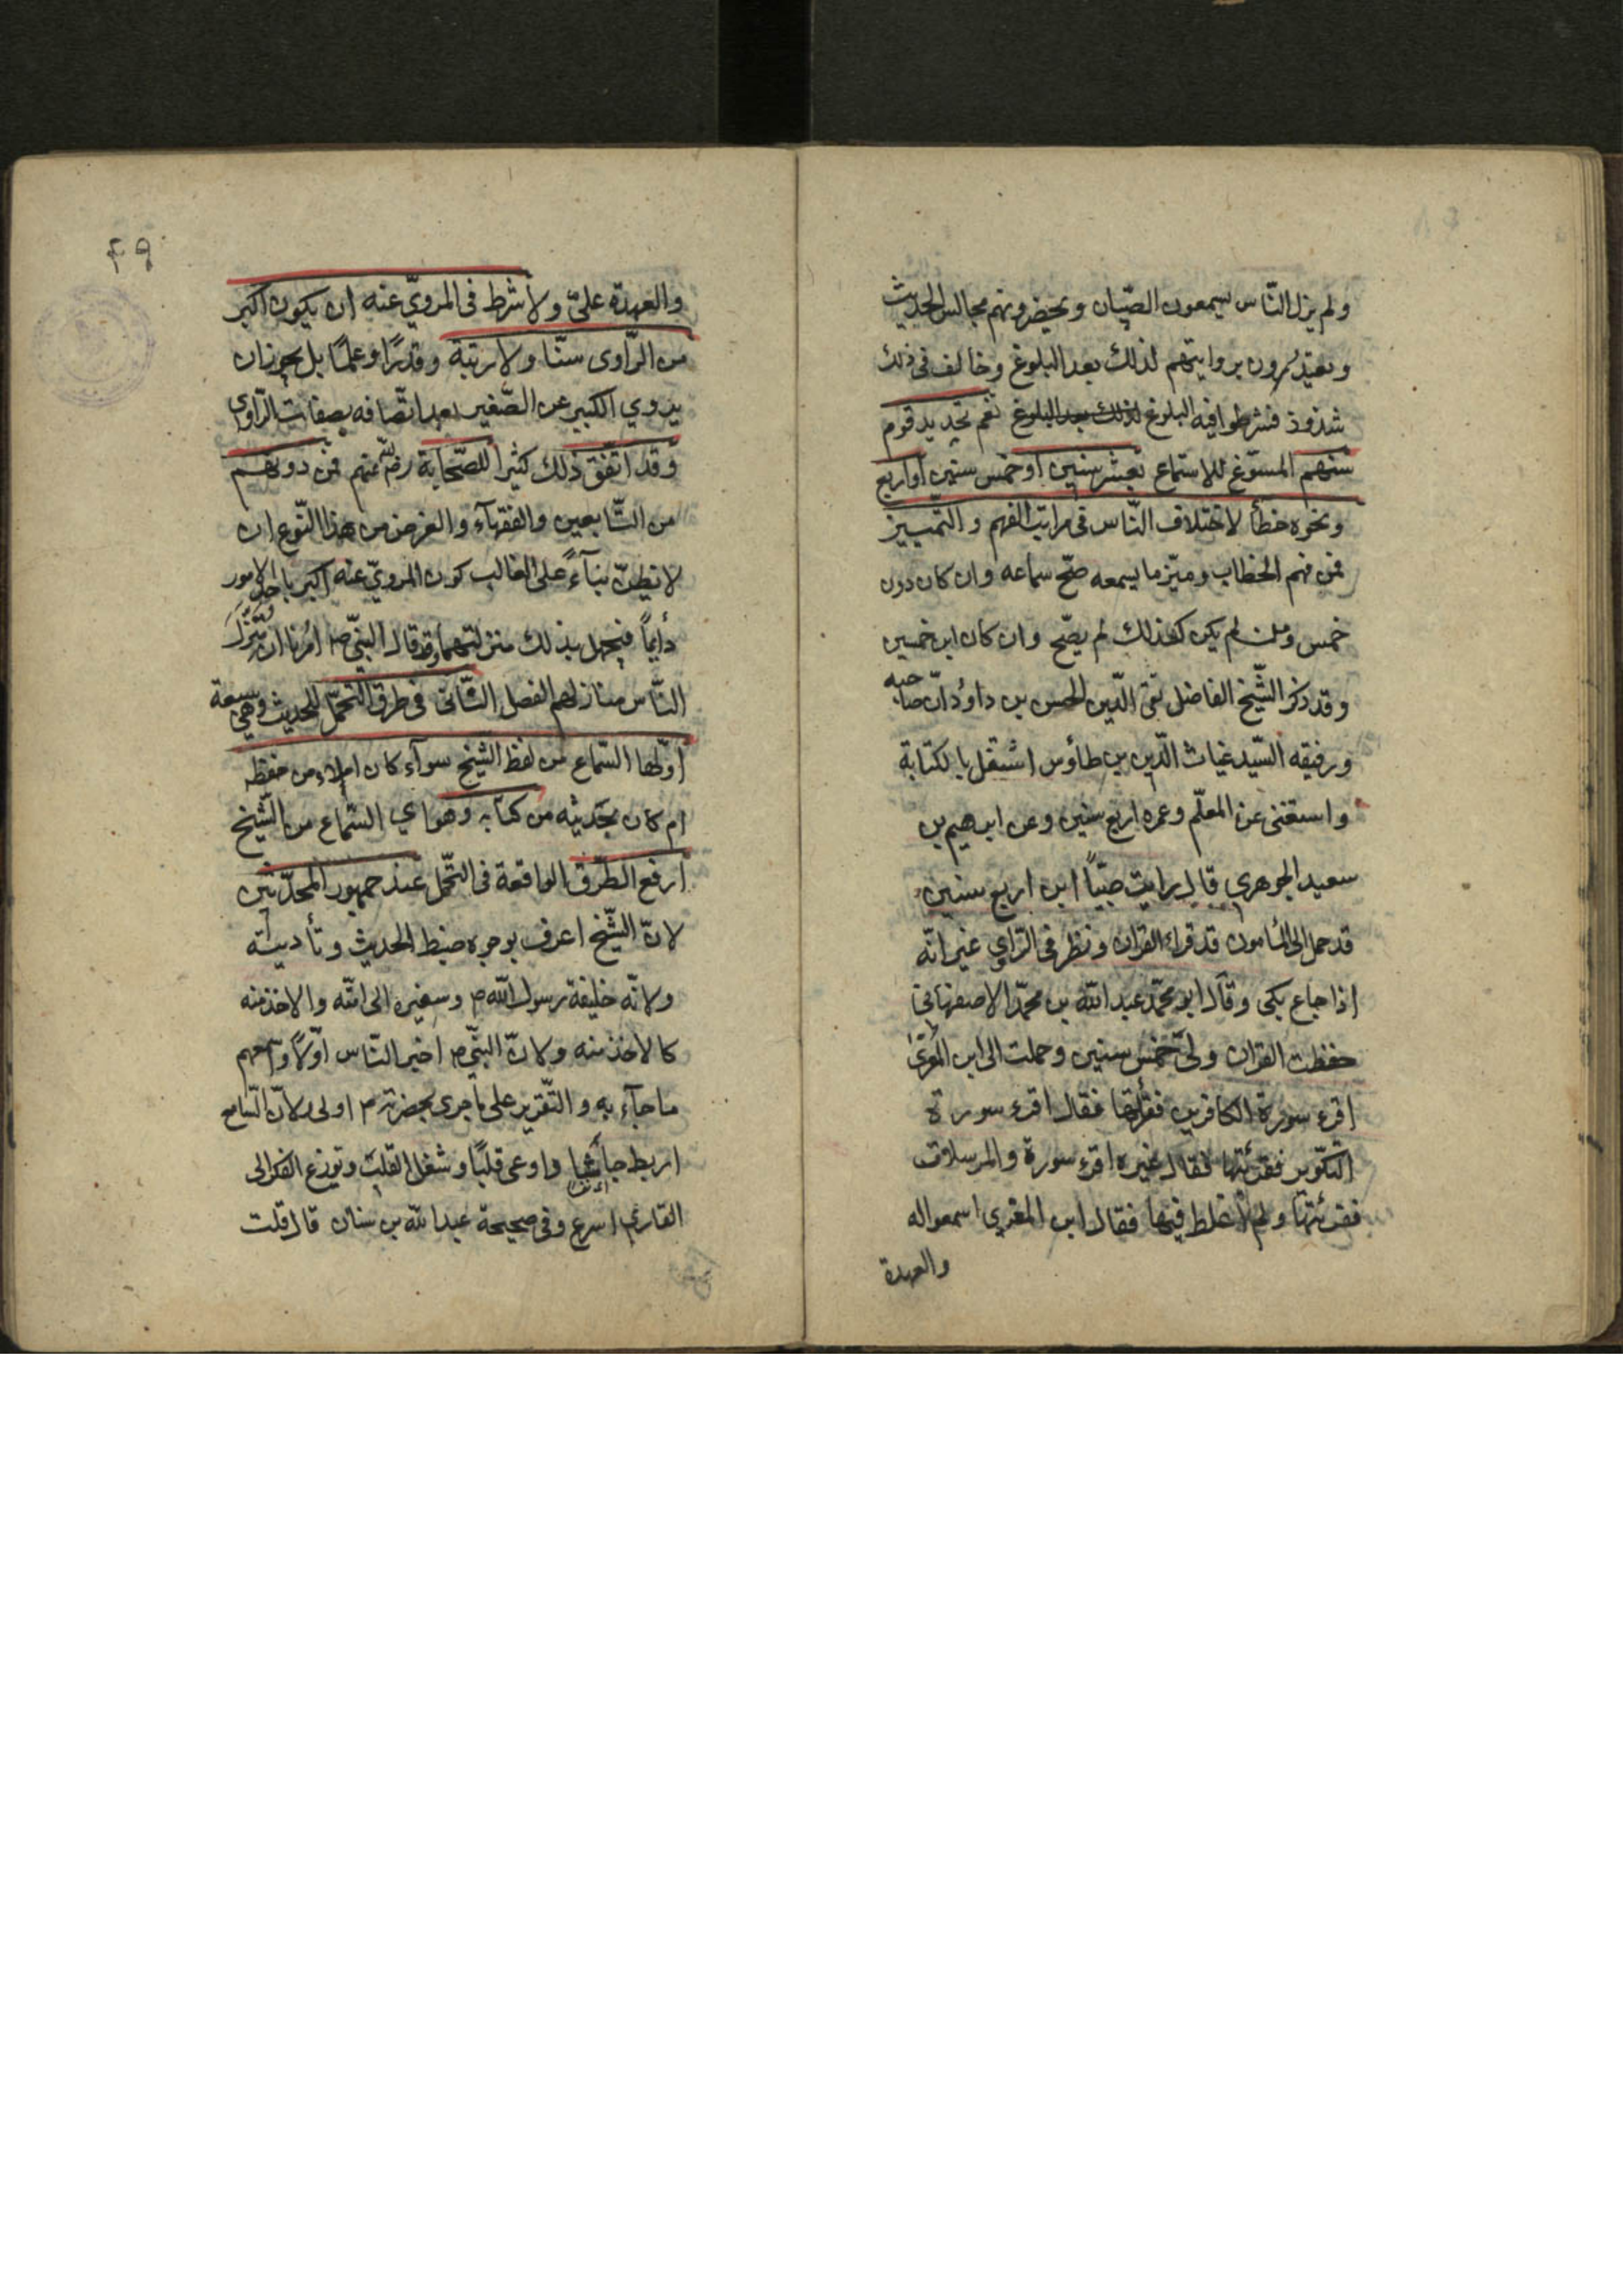 ولم يزل النّاس يسمعون الصّبيان ويحضرونهم مجالس الحديث
ويعتدّون بروايتهم لذلك بعد البلوغ وخالف في ذلك
شذوذ فشرطوا فيه البلوغ لذلك بعد البلوغ نعم تحديد قوم
سنهم المسوّغ للاستماع بعشر سنين او خمس سنين او اربع
ونحوه خطأ لاختلاف النّاس في مراتب الفهم والتّمييز
فمن فهم الخطاب وميّز ما يسمعه صحّ سماعه وان كان دون
خمس ومن لم يكن كذلك لم يصّح وان كان ابن خمسين
وقد ذكر الشّيخ الفاضل تقى الدّين الحسن بن داوُد انّ صاحبه
ورفيقه السّيد غياث الدّين بن طاوُس اشتغل بالكتابة
واستغنى عن المعلّم وعمره اربع سنين وعن ابرهيم بن
سعيد الجوهري قال رايت صبيّاً ابن اربع سنين
قد حمل الى المأمون قد قراء القران ونظر في الرّاي غير انّه
اذا جاع بكى وقال ابو محمّد عبد اللّه بن محمّد الاصفهاني
حفظت القران ولى خمس سنين وحملت الى ابن المقرئ
اقرء سورة الكافرين فقرأتها فقال اقرء سورة
التكوير فقرئتها فقال غيره اقرء سورة والمرسلات
فقرئتها ولم اغلط فيها فقال ابن المقري اسمعوا له
والعهدة
۴۹
والعهدة علىّ ولا شرط في المرويّ عنه ان يكون اكبر
من الرّاوى سنّا ولا رتبة وقدرًا وعلمًا بل يجوز ان
يروي الكبير عن الصّغير بعد اتّصافه بصفات الرّاوي
وقد اتّفق ذلك كثيرا للصّحابة رضي اللّه عنهم فمن دونهم
من التّابعين والفقهآء والغرض من هذا النّوع ان
لا نظنّ بنآءً على الغالب كون المرويّ عنه اكبر باحد الامور
دأيماً فيجهل بذلك منزلتهما وقد قال النبيّ ص امرنا ان ننزّل
النّاس منازلهم الفصل الثّاني في طرق التّحمّل للحديث وهي سبعة
اوّلها السّماع من لفظ الشّيخ سوآء كان املاء من حفظه
ام كان تحديثه من كتابه وهو اي السّماع من الشّيخ
ارفع الطّرق الواقعة في التّحمّل عند جمهور المحدّثين
لانّ الشّيخ اعرف بوجوه ضبط الحديث وتأديته
ولانّه خليفة رسول اللّه ص وسفيره الى امّته والاخذ منه
كالاخذ منه ولانّ النّبيّ ص اخبر النّاس اوّلاً واسمعهم
ما جآء به والتّقرير على ما جرى بحضرته ص اولى ولانّ السّامع
اربط جأشًا واوعى قلبًا وشغل القلب وتوزع الفكر الى
القاري اسرع وفي صحيحة عبد اللّه بن سنان قال قلت